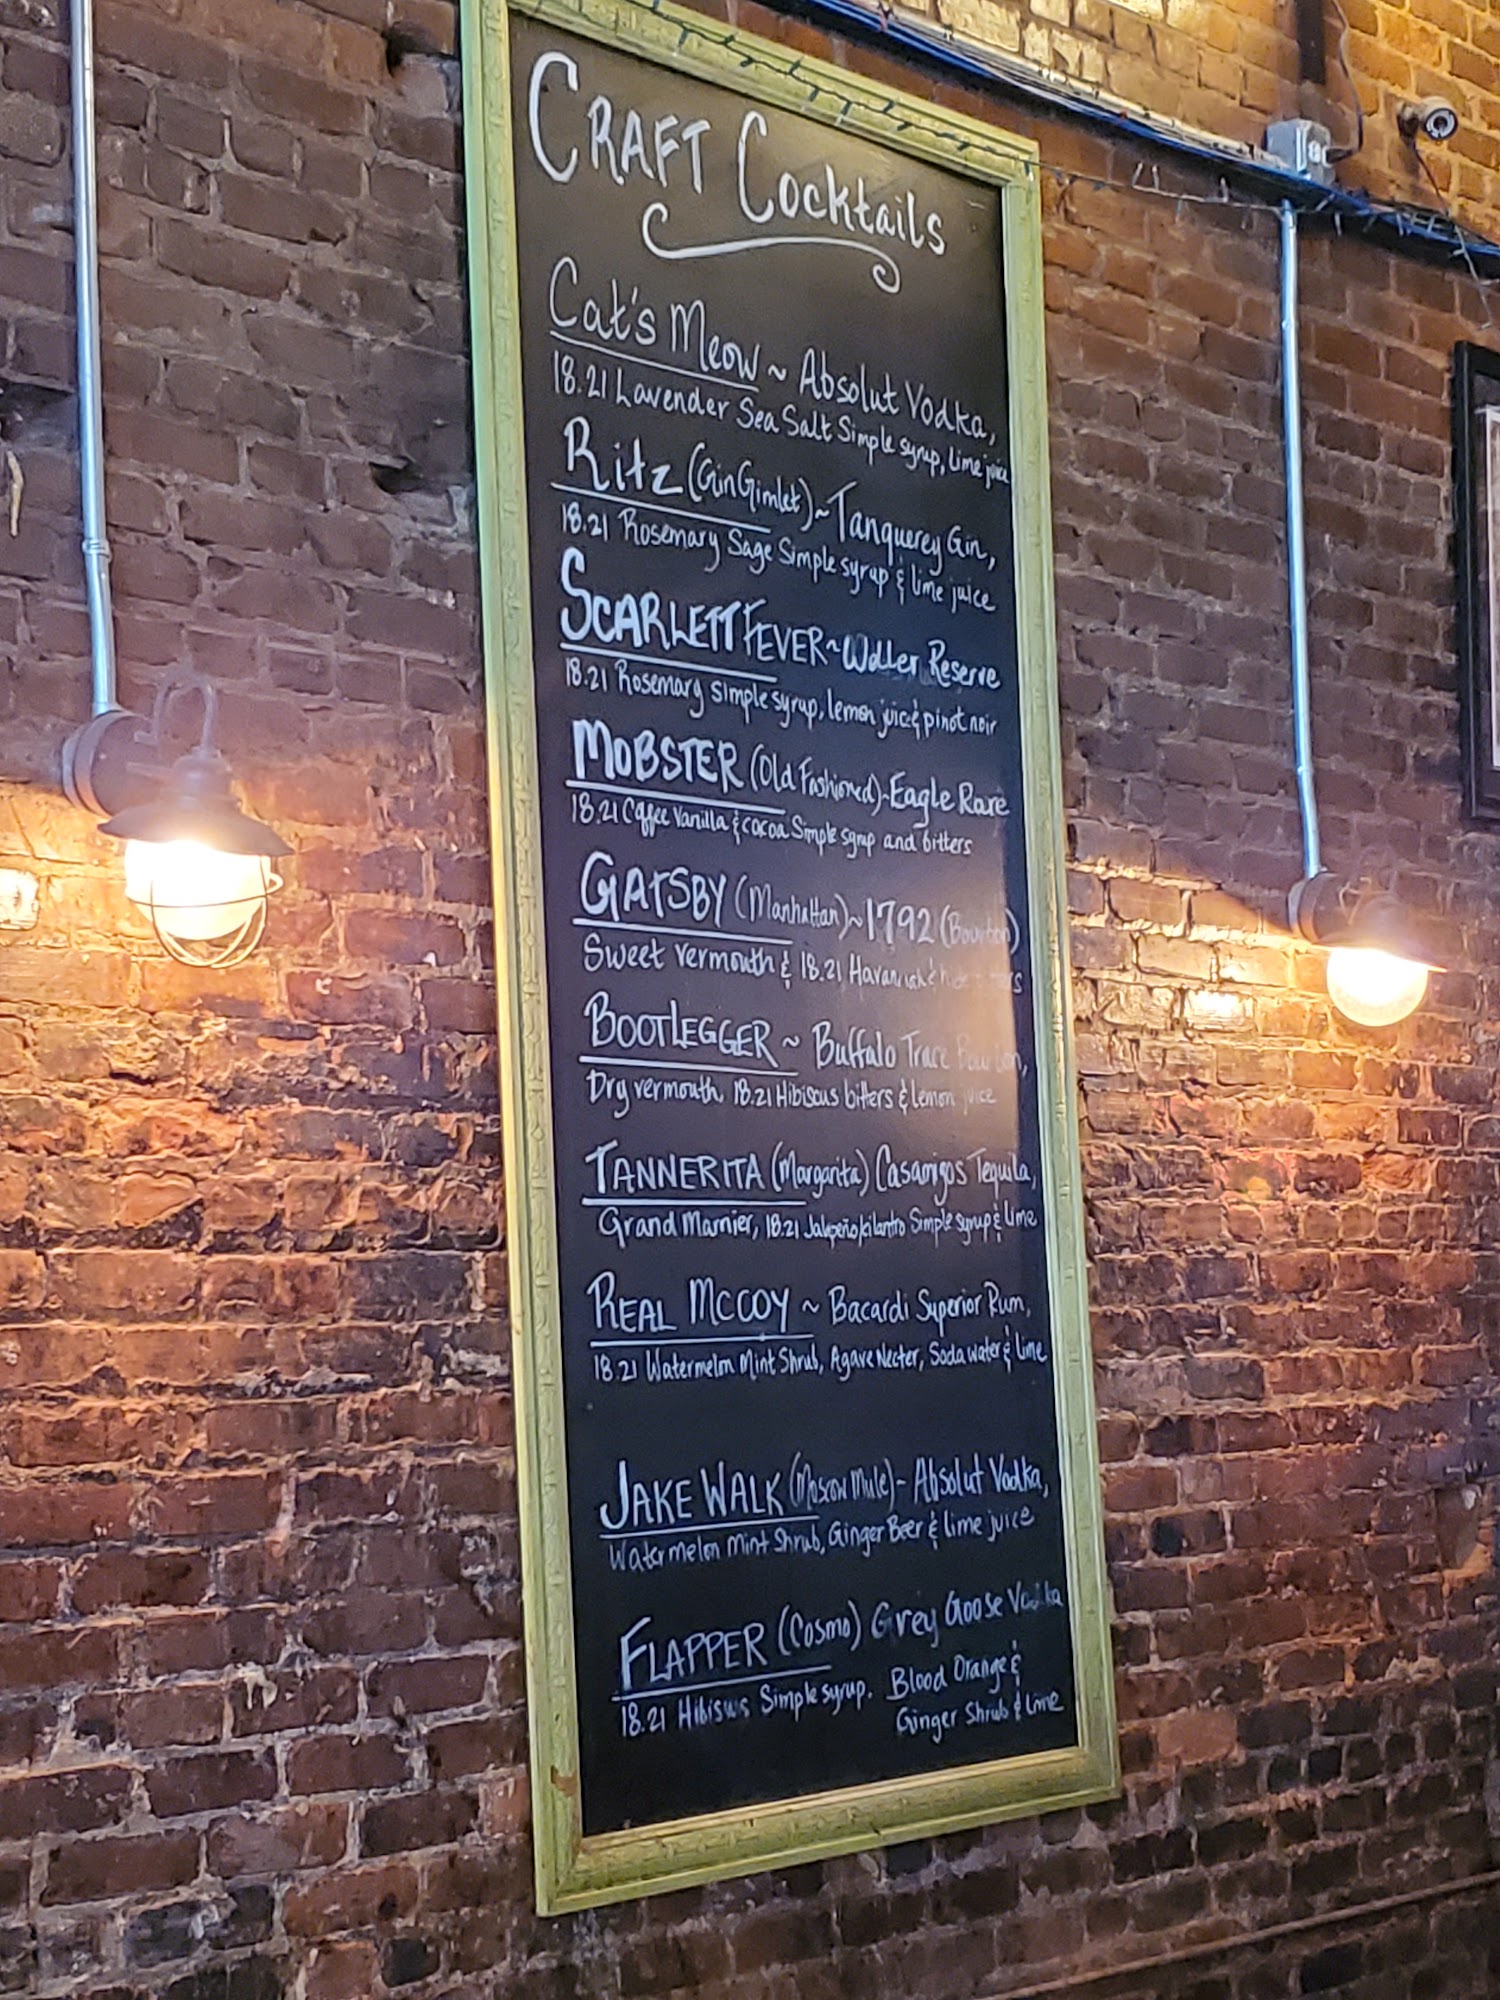 CRAFT Cocktails
Cat's Meow ~ Absolut Vodka,
18.21 Lavender Sea Salt Simple syrup, lime juice
Ritz (Gin Gimlet) ~ Tanqueray Gin,
18.21 Rosemary Sage Simple syrup & lime juice
SCARLETT FEVER ~ Weller Reserve
18.21 Rosemary simple syrup, lemon juice & pinot noir
MOBSTER (Old Fashioned) - Eagle Rare
18.21 Coffee Vanilla & cocoa Simple syrup and bitters
GATSBY (Manhattan) ~ 1792 (Bourbon)
Sweet vermouth & 18.21 Havana &
BOOTLEGGER ~ Buffalo Trace Bourbon,
Dry vermouth, 18.21 Hibiscus bitters & Lemon juice
TANNERITA (Margarita) Casamigos Tequila,
Grand Marnier, 18.21 Jalapeño/cilantro Simple syrup & lime
REAL MCCOY ~ Bacardi Superior Rum,
18.21 Watermelon Mint Shrub, Agave Necter, Soda water & lime
JAKE WALK (Moscow Mule) - Absolut Vodka,
Watermelon Mint Shrub, Ginger Beer & lime juice
FLAPPER (Cosmo) Grey Goose Vodka
18.21 Hibisus Simple syrup. Blood Orange &
Ginger Shrub & lime